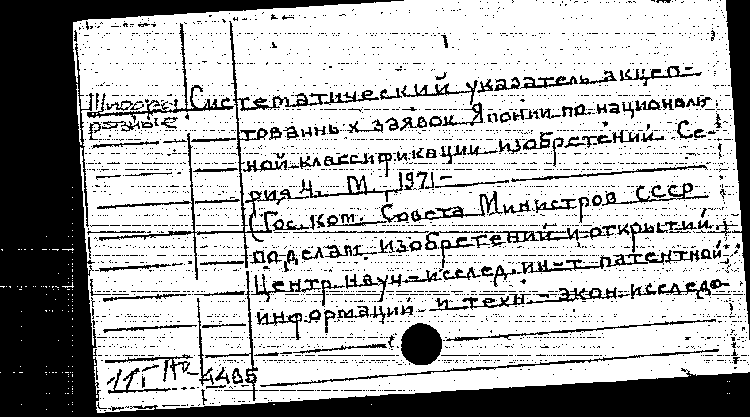 Шифры
разные
Систематический указатель акцеп-
тованных заявок Японии по националь
ной классификации изобретений. Се-
рия 4. М, 1971-
(Гос. Ком. Совета Министров СССР
по делам изобретений и открытий.
Центр. науч-исслед. ин-т патентной
информации и техн.-экон. исследо
4485